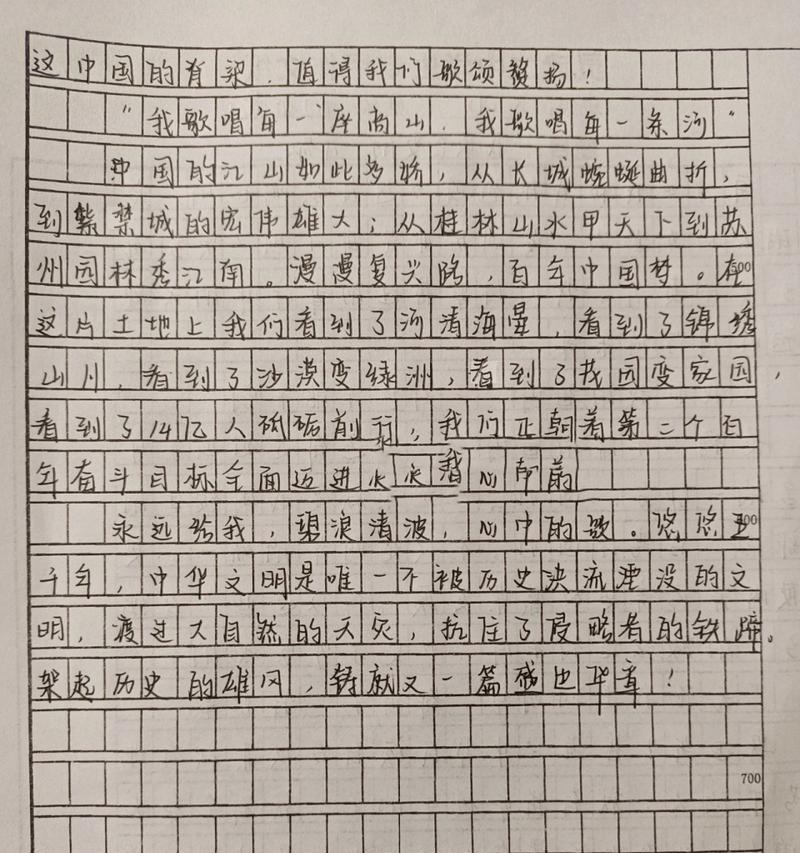 这中国的脊梁，值得我们歌颂赞扬！
“我歌唱每一座高山，我歌唱每一条河”
中国的江山如此多娇，从长城蜿蜒曲折，
到紫禁城的宏伟雄大；从桂林山水甲天下到苏
州园林秀江南。漫漫复兴路，百年中国梦。在
这片土地上我们看到了河清海晏，看到了锦绣
山川，看到了沙漠变绿洲，看到了找园变家园，
看到了14亿人砥砺前行，我们正朝着第二个百
年奋斗目标全面迈进
永远给我，碧浪清波，心中的歌。悠悠五
千年，中华文明是唯一不被历史洪流湮没的文
明，渡过大自然的天灾，抗住了侵略者的铁蹄。
架起历史的雄风，铸就又一篇盛世华章！
700